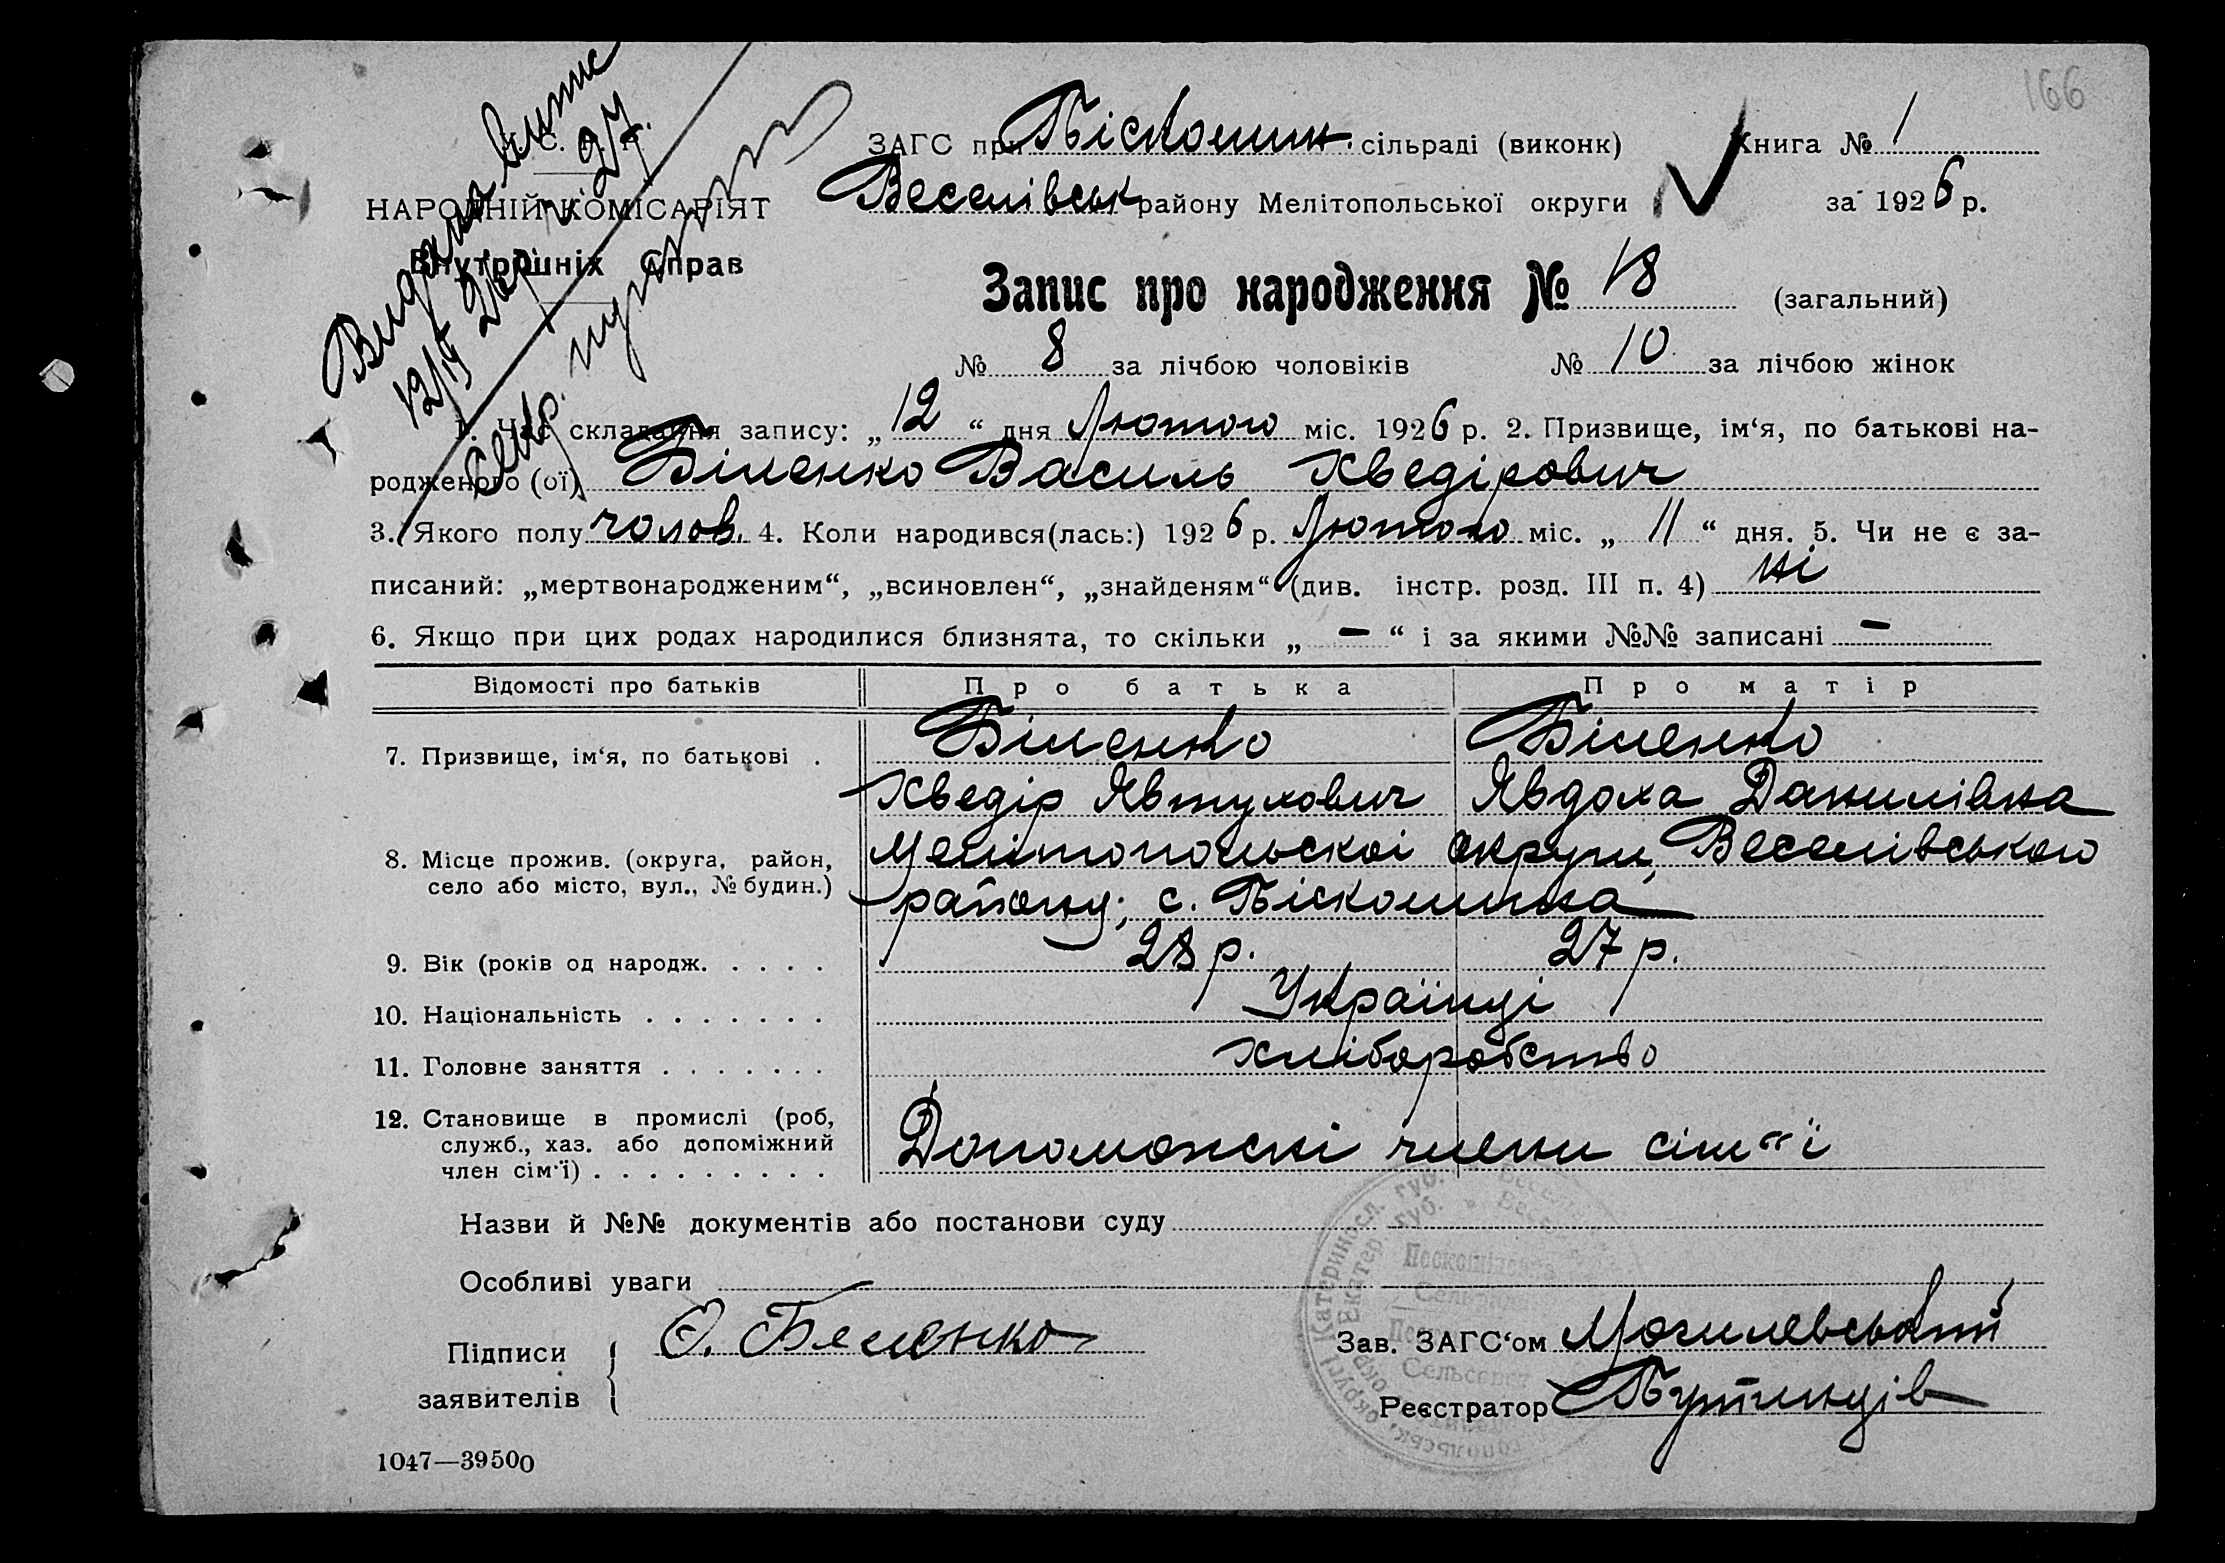 166
Видана випис
12/IV 27.
Секр.
У. С. Р. Р.
НАРОДНІЙ КОМІСАРІЯТ
Внутрішніх Справ
ЗАГС при Піскошин. сільраді (виконк) Книга № 1
Веселівськ району Мелітопольської округи за 1926 р.
Запис про народження № 18 (загальний)
№ 8 за лічбою чоловіків № 10 за лічбою жінок
1. Час складання запису: „12“ дня Лютого міс. 1926 р. 2. Призвище, ім‘я, по батькові на-
родженого (ої) Біленко Василь Хведірович
3. Якого полу чолов. 4. Коли народився(лась:) 1926 р. Лютого міс. „11“ дня. 5. Чи не є за-
писаний: „мертвонародженим“, „всиновлен“, „знайденям“ (див. інстр. розд. III п. 4) ні
6. Якщо при цих родах народилися близнята, то скільки „ — “ і за якими №№ записані —
Відомості про батьків Про батька Про матір
7. Призвище, ім‘я, по батькові . Біленко Біленко
Хведір Явтухович Явдоха Данилівна
8. Місце прожив. (округа, район, Мелітопольскоі округи, Веселівського
село або місто, вул., № будин.) району; с. Піскошина
9. Вік (років од народж. . . . . 28 р. 27 р.
10. Національність . . . . . . . Українці
11. Головне заняття . . . . . . . хліборобство
12. Становище в промислі (роб,
служб., хаз. або допоміжний Допоможні члени сім“ї
член сім‘ї) . . . . . . . . .
Назви й №№ документів або постанови суду
Особливі уваги
Підписи Ѳ. Беленко Зав. ЗАГС‘ом Могилевський
заявителів Реєстратор Путинців
1047—39500